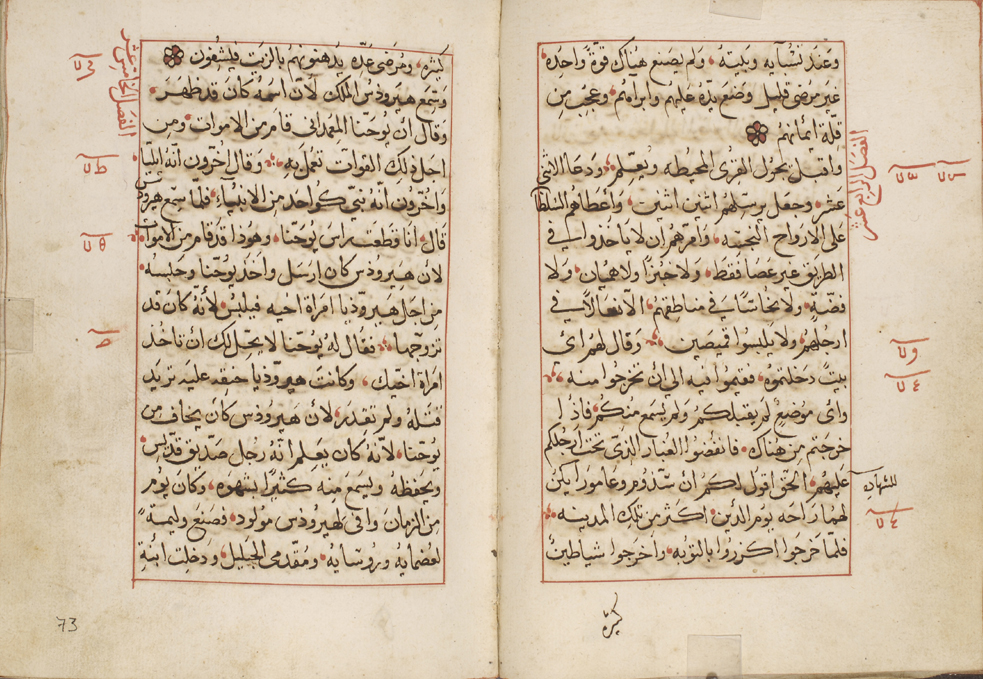 وعند نشآيه وبيته، ولم يصنع هناك قوة واحده
غير مرضى قليل وضع يده عليهم وابرآهم، وعجب من
قلة ايمانهم
الفصل الرابع عشر
واقبل يجول القرى المحيطه ويعلم، ودعا الاثنى
عشر، وجعل يرسلهم اثنين اثنين، واعطاهم السلطان
على الارواح النجسه، وامرهم ان لا ياخذوا شي في
الطريق غير عصا فقط، ولا خبزا ولا هميان، ولا
فضة، ولا نحاسا في مناطقهم، الا نعالا في
ارجلهم، ولا يلبسوا قميصين، وقال لهم اى
بيت دخلتموه، فقيموا فيه الى ان تخرجوا منه
واى موضع لم يقبلكم ولم يسمع منكم، فاذا
خرجتم من هناك، فانفضوا الغبار الذى تحت ارجلكم
للشهاده
عليهم، الحق اقول لكم ان سدوم وعامورا يكن
لهما راحه يوم الدين، اكثر من تلك المدينه
فلما خرجوا اكرزوا بالتوبه، واخرجوا شياطين
كثيره
كثيره، ومرضى عده يدهنونهم بالزيت فيشفون
الفصل الخامس عشر
وسمع هيرودس الملك لان اسمه كان قد ظهر،
وقال ان يوحنا المعمدانى قام من الاموات، ومن
اجل ذلك القوات تعمل به، وقال اخرون انه ايليا
واخرون انه نبي كواحد من الانبياء، فلما سمع هيرودس
قال، انا قطعت راس يوحنا، وهوذا قد قام من الاموات
لان هيرودس كان ارسل واخذ يوحنا وحبسه
من اجل هيروديا امراة اخيه فيلبس، لانه كان قد
تزوجها، فقال له يوحنا لا يحل لك ان تاخذ
امراة اخيك، وكانت هيروديا حنقه عليه تريد
قتله ولم تقدر، لان هيرودس كان يخاف من
يوحنا، لانه كان يعلم انه رجل صديق قديس
ويحفظه ويسمع منه كثيرا بشهوه، وكان يوم
من الزمان وافى لهيرودس مولود، فصنع وليمة
لعضمايه وروسايه، ومقدمى الجليل، ودخلت ابنة
73